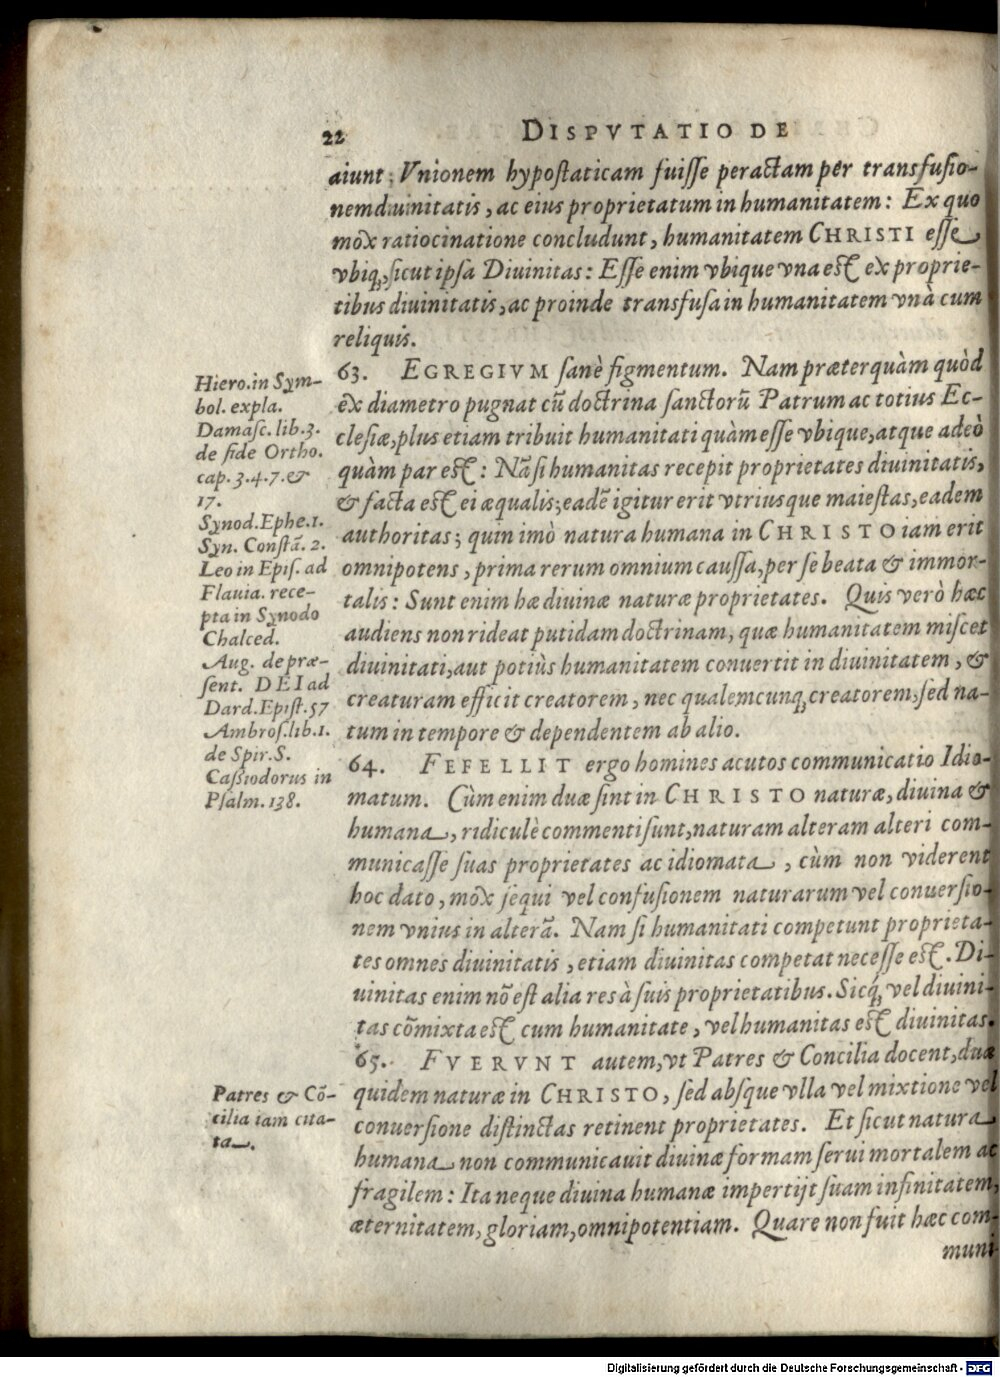 22 DISPVTATIO DE
aiunt: Vnionem hypostaticam fuisse peractam per transfusio-
nem diuinitatis, ac eius proprietatum in humanitatem: Ex quo
mox ratiocinatione concludunt, humanitatem CHRISTI esse
vbiq;, sicut ipsa Diuinitas: Esse enim vbique vna est ex proprie-
tibus diuinitatis, ac proinde transfusa in humanitatem vnà cum
reliquis.
63. EGREGIVM sanè figmentum. Nam præterquàm quòd
ex diametro pugnat cũ doctrina sanctorũ Patrum ac totius Ec-
clesiæ, plus etiam tribuit humanitati quàm esse vbique, atque adeò
quàm par est: Nã si humanitas recepit proprietates diuinitatis,
& facta est ei æqualis; eadẽ igitur erit vtriusque maiestas, eadem
authoritas; quin imò natura humana in CHRISTO iam erit
omnipotens, prima rerum omnium caussa, per se beata & immor-
talis: Sunt enim hæ diuinæ naturæ proprietates. Quis verò hæc
audiens non rideat putidam doctrinam, quæ humanitatem miscet
diuinitati, aut potiùs humanitatem conuertit in diuinitatem, &
creaturam efficit creatorem, nec qualemcunq; creatorem, sed na-
tum in tempore & dependentem ab alio.
64. FEFELLIT ergo homines acutos communicatio Idio-
matum. Cùm enim duæ sint in CHRISTO naturæ, diuina &
humana, ridiculè commenti sunt, naturam alteram alteri com-
municasse suas proprietates ac idiomata, cùm non viderent
hoc dato, mox sequi vel confusionem naturarum vel conuersio-
nem vnius in alterã. Nam si humanitati competunt proprieta-
tes omnes diuinitatis, etiam diuinitas competat necesse est. Di-
uinitas enim nõ est alia res à suis proprietatibus. Sicq; vel diuini-
tas cõmixta est cum humanitate, vel humanitas est diuinitas.
65. FVERVNT autem, vt Patres & Concilia docent, duæ
quidem naturæ in CHRISTO, sed absque vlla vel mixtione vel
conuersione distinctas retinent proprietates. Et sicut natura
humana non communicauit diuinæ formam serui mortalem ac
fragilem: Ita neque diuina humanæ impertijt suam infinitatem,
æternitatem, gloriam, omnipotentiam. Quare non fuit hæc com-
muni-
Hiero. in Sym-
bol. expla.
Damasc. lib. 3.
de fide Ortho.
cap. 3.4.7. &
17.
Synod. Ephe. 1.
Syn. Constã. 2.
Leo in Epis. ad
Flauia. rece-
pta in Synodo
Chalced.
Aug. de præ-
sent. DEI ad
Dard. Epist. 57
Ambros. lib. 1.
de Spir. S.
Cassiodorus in
Psalm. 138.
Patres & Cõ-
cilia iam cita-
ta.
Digitalisierung gefördert durch die Deutsche Forschungsgemeinschaft - DFG